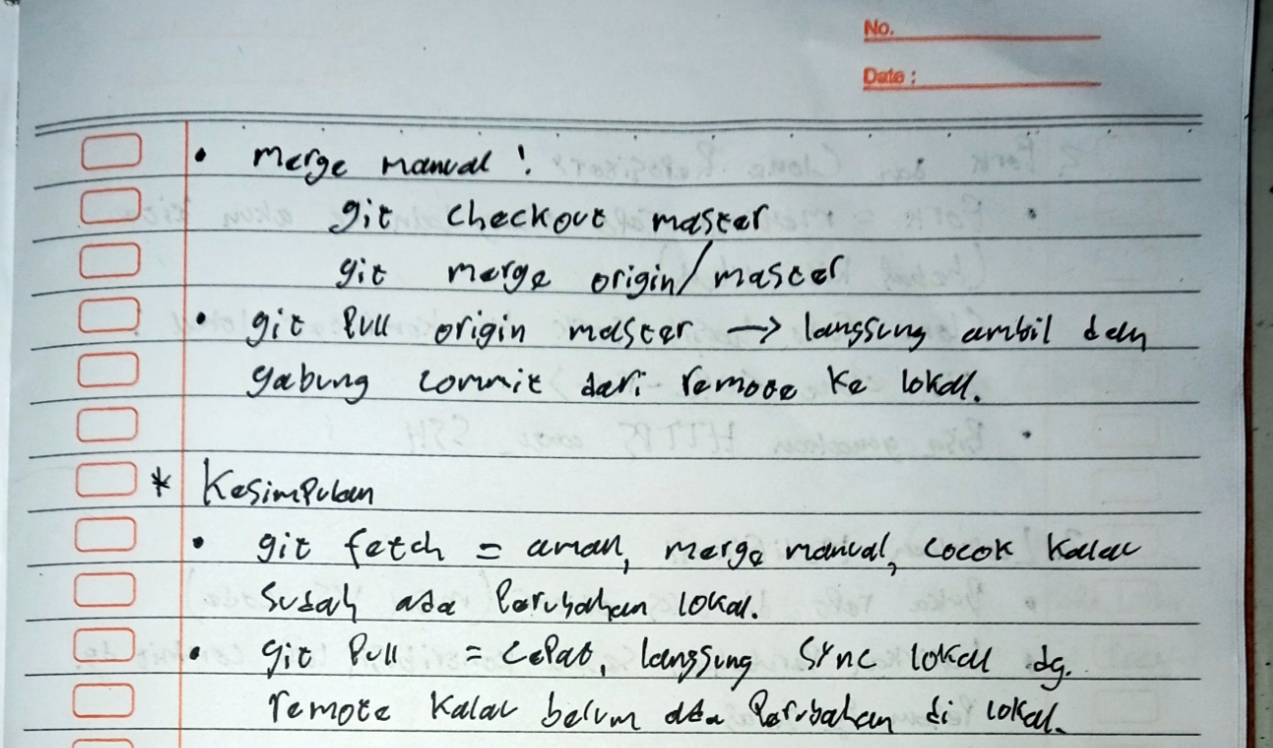 No.
Date :
• merge manual :
git checkout master
git merge origin/master
• git Pull origin master → langsung ambil dan
gabung commit dari remote ke lokal.
* Kesimpulan
• git fetch = aman, merge manual, cocok kalau
sudah ada Perubahan lokal.
• git Pull = cepat, langsung sync lokal dg.
remote kalau belum ada Perubahan di lokal.